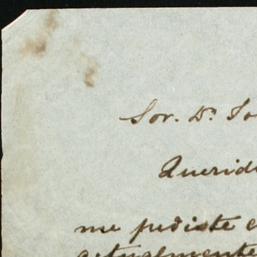 Sor. Dn. Jo
Querid
me pediste e
actualmente